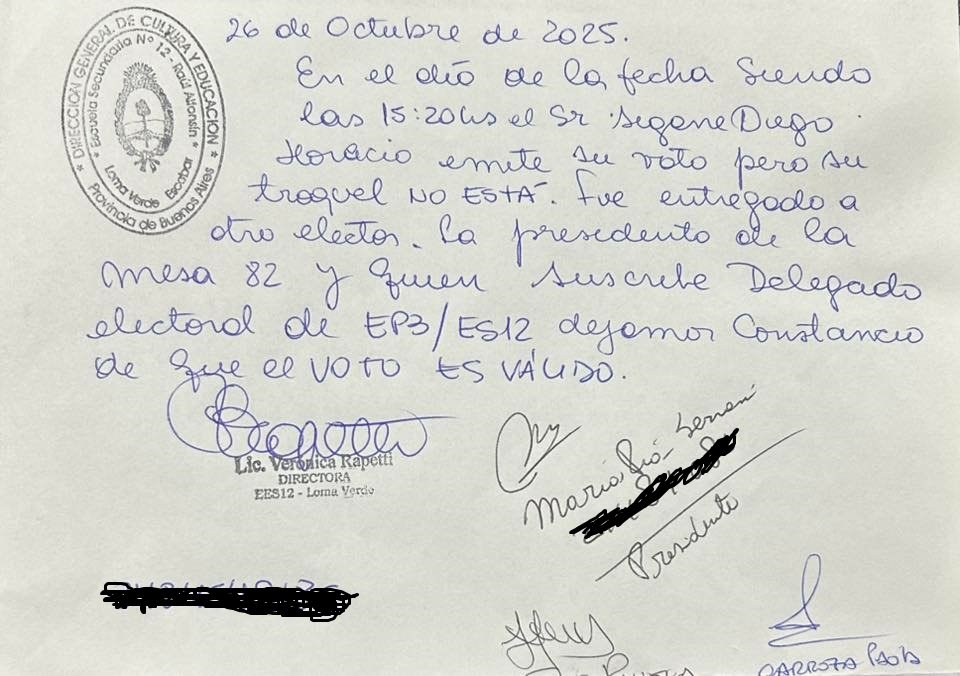 DIRECCION GENERAL DE CULTURA Y EDUCACION
* Escuela Secundaria Nº 12 - Raúl Alfonsín *
Loma Verde Escobar
Provincia de Buenos Aires
26 de Octubre de 2025.
En el día de la fecha Siendo
las 15:20hs el Sr. Segane Diego
Horacio emite su voto pero su
troquel NO ESTÁ. Fue entregado a
otro elector. La presidenta de la
mesa 82 y quien suscribe Delegado
electoral de EP3/ES12 dejamos Constancia
de que el VOTO ES VÁLIDO.
Lic. Verónica Rapetti
DIRECTORA
EES12 - Loma Verde
María
Presidente
Paola